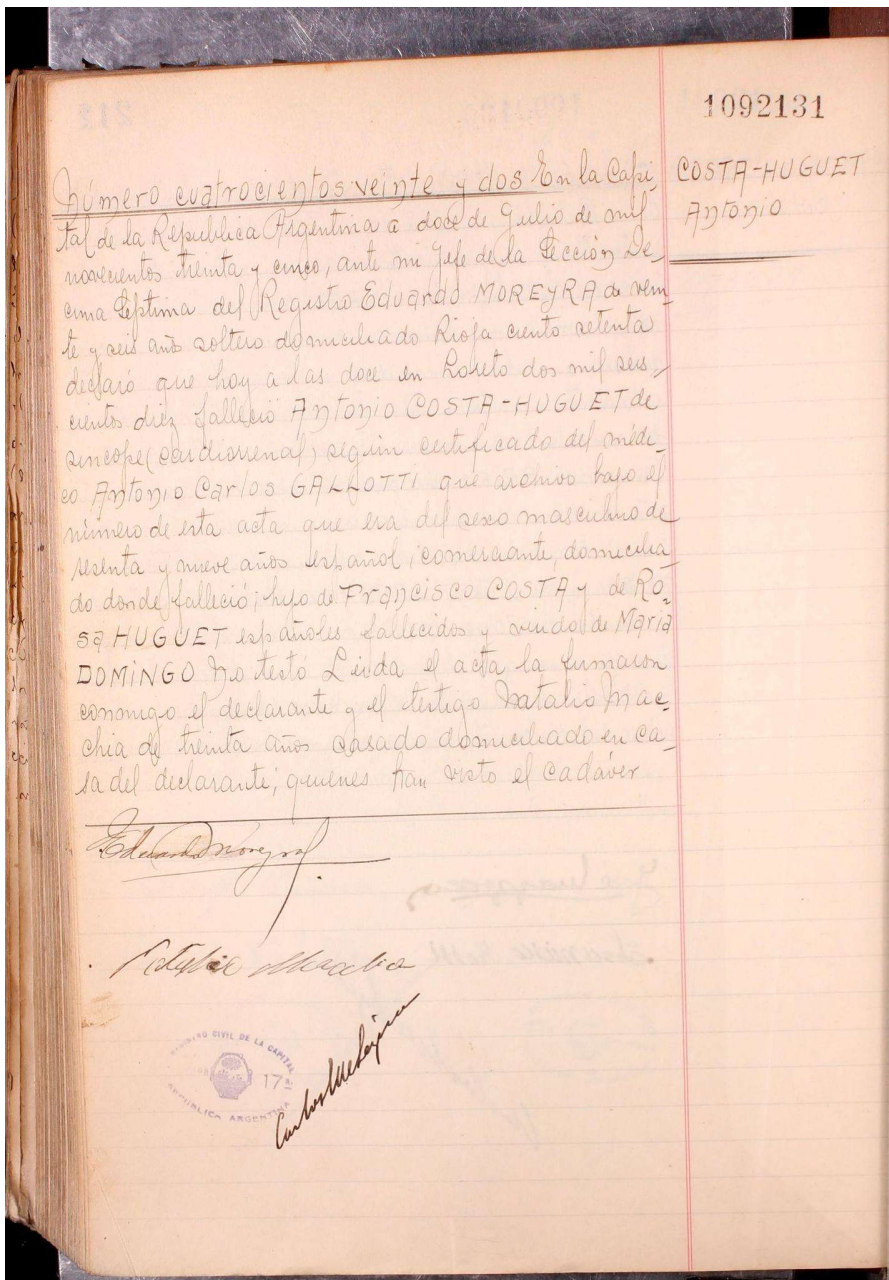 1092131
COSTA-HUGUET
Antonio
Número cuatrocientos veinte y dos En la Capi-
tal de la Republica Argentina a doce de Julio de mil
novecientos treinta y cinco, ante mi Jefe de la Sección De-
cima Séptima del Registro Eduardo MOREYRA de vein-
te y seis años soltero domiciliado Rioja ciento setenta
declaró que hoy a las doce en Loreto dos mil seis-
cientos diez falleció Antonio COSTA-HUGUET de
sincope (cardiorrenal) según certificado del médi-
co Antonio Carlos GALLOTTI que archivo bajo el
número de esta acta que era del sexo masculino de
sesenta y nueve años español, comerciante, domicilia-
do donde falleció; hijo de Francisco COSTA y de Ro-
sa HUGUET españoles fallecidos y viudo de Maria
DOMINGO No testó Leida el acta la firmaron
conmigo el declarante y el testigo Natalio Mac-
chia de treinta años casado domiciliado en ca-
sa del declarante; quienes han visto el cadáver
Eduardo Moreyra
Macchia
REGISTRO CIVIL DE LA CAPITAL
17ª
REPÚBLICA ARGENTINA